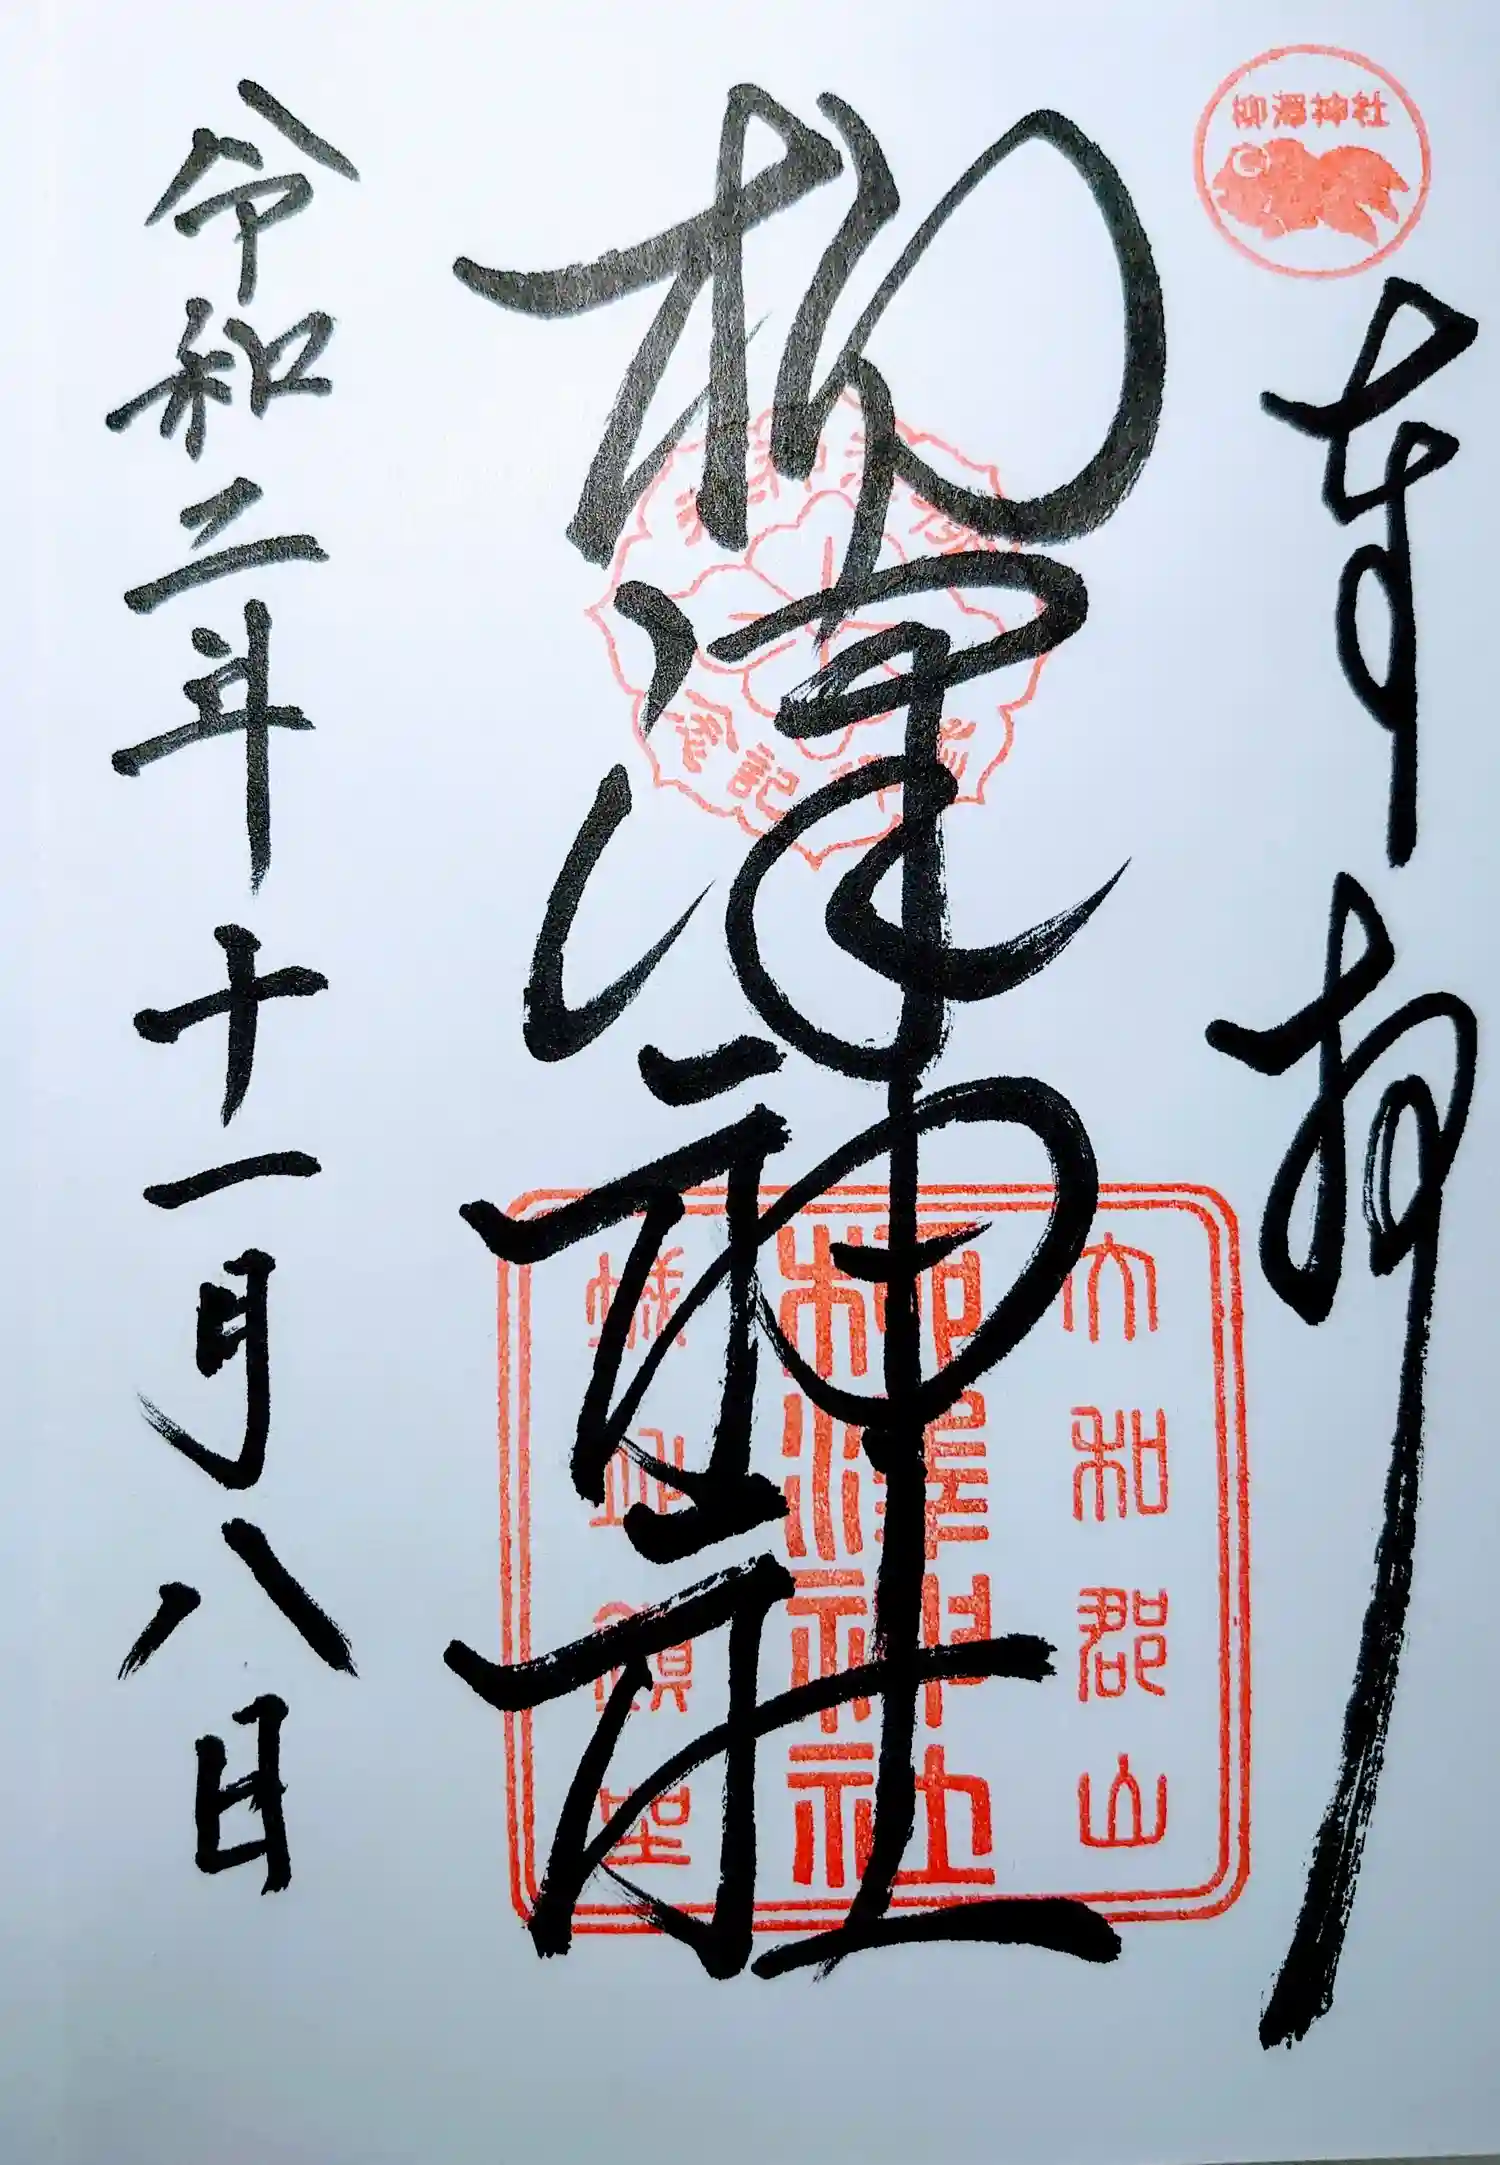 柳澤神社
奉拝
柳澤神社
大和郡山
柳澤神社
令和二年十一月八日